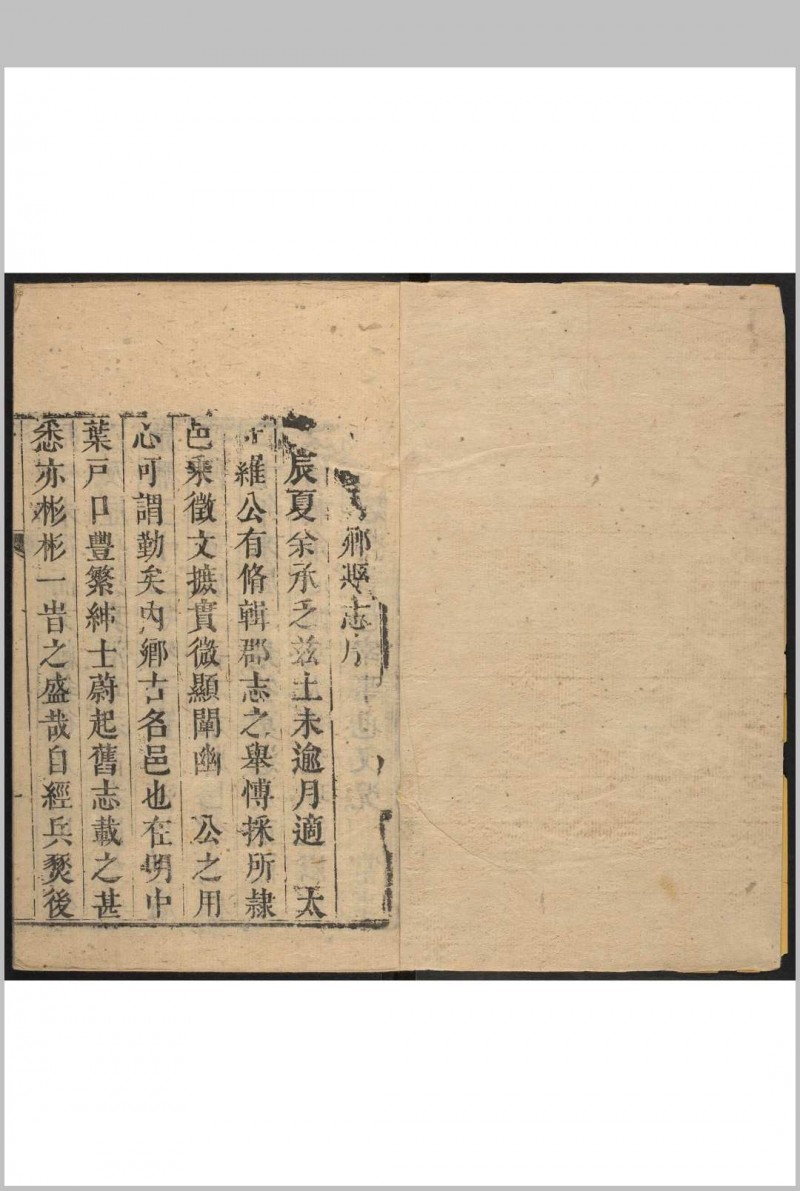 鄉縣志序
辰夏余承乏兹土未逾月適　太
維公有脩輯郡志之舉愽採所隷
邑乗徵文摭實微顯闡幽　公之用
心可謂勤矣内鄉古名邑也在明中
葉戸口豐繁紳士蔚起舊志載之甚
悉亦彬彬一旹之盛哉自經兵燹後